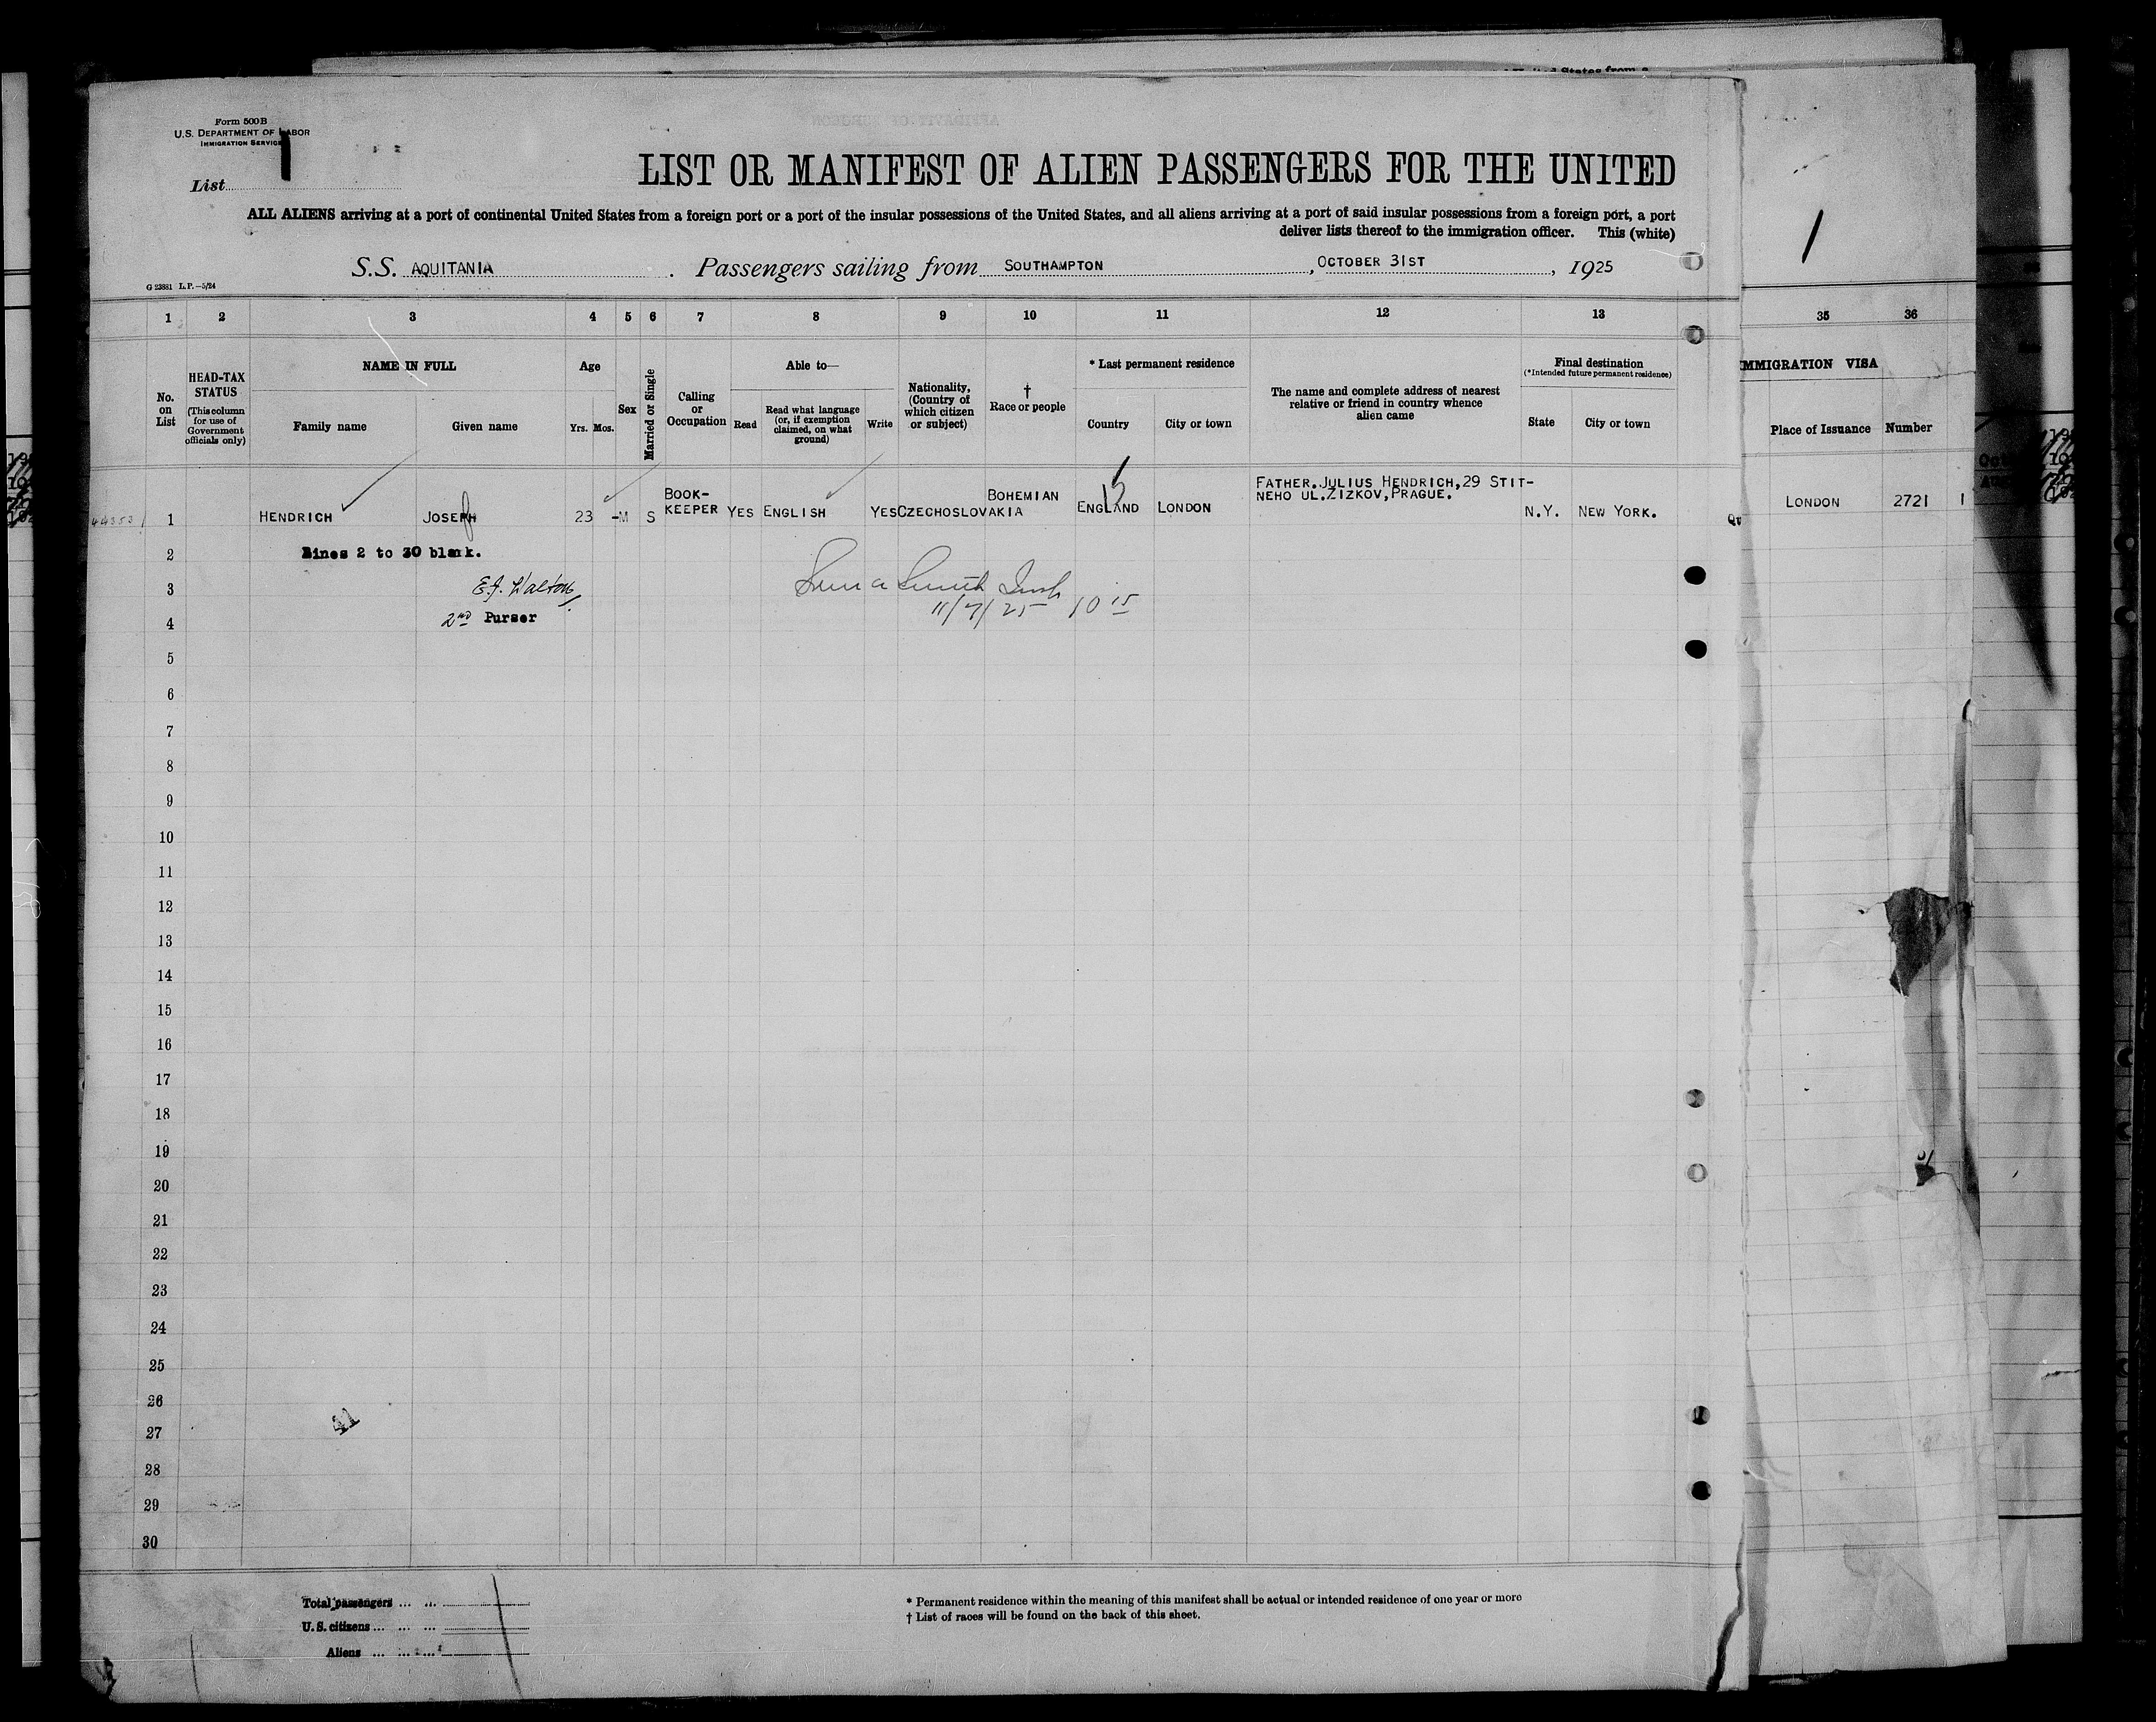 Form 500B
U.S. DEPARTMENT OF LABOR
IMMIGRATION SERVICE
List 1
LIST OR MANIFEST OF ALIEN PASSENGERS FOR THE UNITED
ALL ALIENS arriving at a port of continental United States from a foreign port or a port of the insular possessions of the United States, and all aliens arriving at a port of said insular possessions from a foreign port, a port
deliver lists thereof to the immigration officer. This (white)
S.S. AQUITANIA . Passengers sailing from SOUTHAMPTON , OCTOBER 31ST , 1925
G 23881 L.P.—5/24
1 2 3 4 5 6 7 8 9 10 11 12 13 35 36
No. on List
HEAD-TAX STATUS
(This column for use of Government officials only)
NAME IN FULL
Family name Given name
Age
Yrs. Mos.
Sex
Married or Single
Calling or Occupation
Able to—
Read
Read what language (or, if exemption claimed, on what ground)
Write
Nationality, (Country of which citizen or subject)
† Race or people
* Last permanent residence
Country City or town
The name and complete address of nearest relative or friend in country whence alien came
Final destination
(*Intended future permanent residence)
State City or town
IMMIGRATION VISA
Place of Issuance Number
1 HENDRICH JOSEPH 23 -M S BOOK-KEEPER YES ENGLISH YES CZECHOSLOVAKIA BOHEMIAN ENGLAND LONDON
FATHER.JULIUS HENDRICH,29 STIT-
NEHO UL.ZIZKOV,PRAGUE.
N.Y. NEW YORK. LONDON 2721 1
2 Lines 2 to 30 blank.
3 E.J. Walton
11/7/25 10 15
4 2nd Purser
5
6
7
8
9
10
11
12
13
14
15
16
17
18
19
20
21
22
23
24
25
26
41
27
28
29
30
Total passengers ... ...
U.S. citizens ... ... ...
Aliens ... ... ...
* Permanent residence within the meaning of this manifest shall be actual or intended residence of one year or more
† List of races will be found on the back of this sheet.